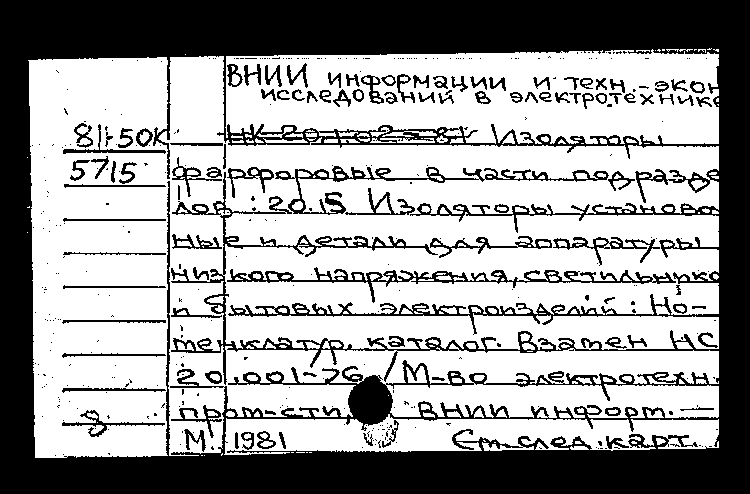 ВНИИ информации и техн.-экон
исследований в электротехнике
81-50К НК 20.1.02-81 Изоляторы
5715 фарфоровые в части подразде
лов : 20.15 Изоляторы установо
ные и детали для аппаратуры
низкого напряжения, светильнико
и бытовых электроизделий : Но-
менклатур. каталог. Взамен НС
20.001-76 / М-во электротехн.
пром-сти, ВНИИ информ. —
8 М. 1981 См. след. карт.